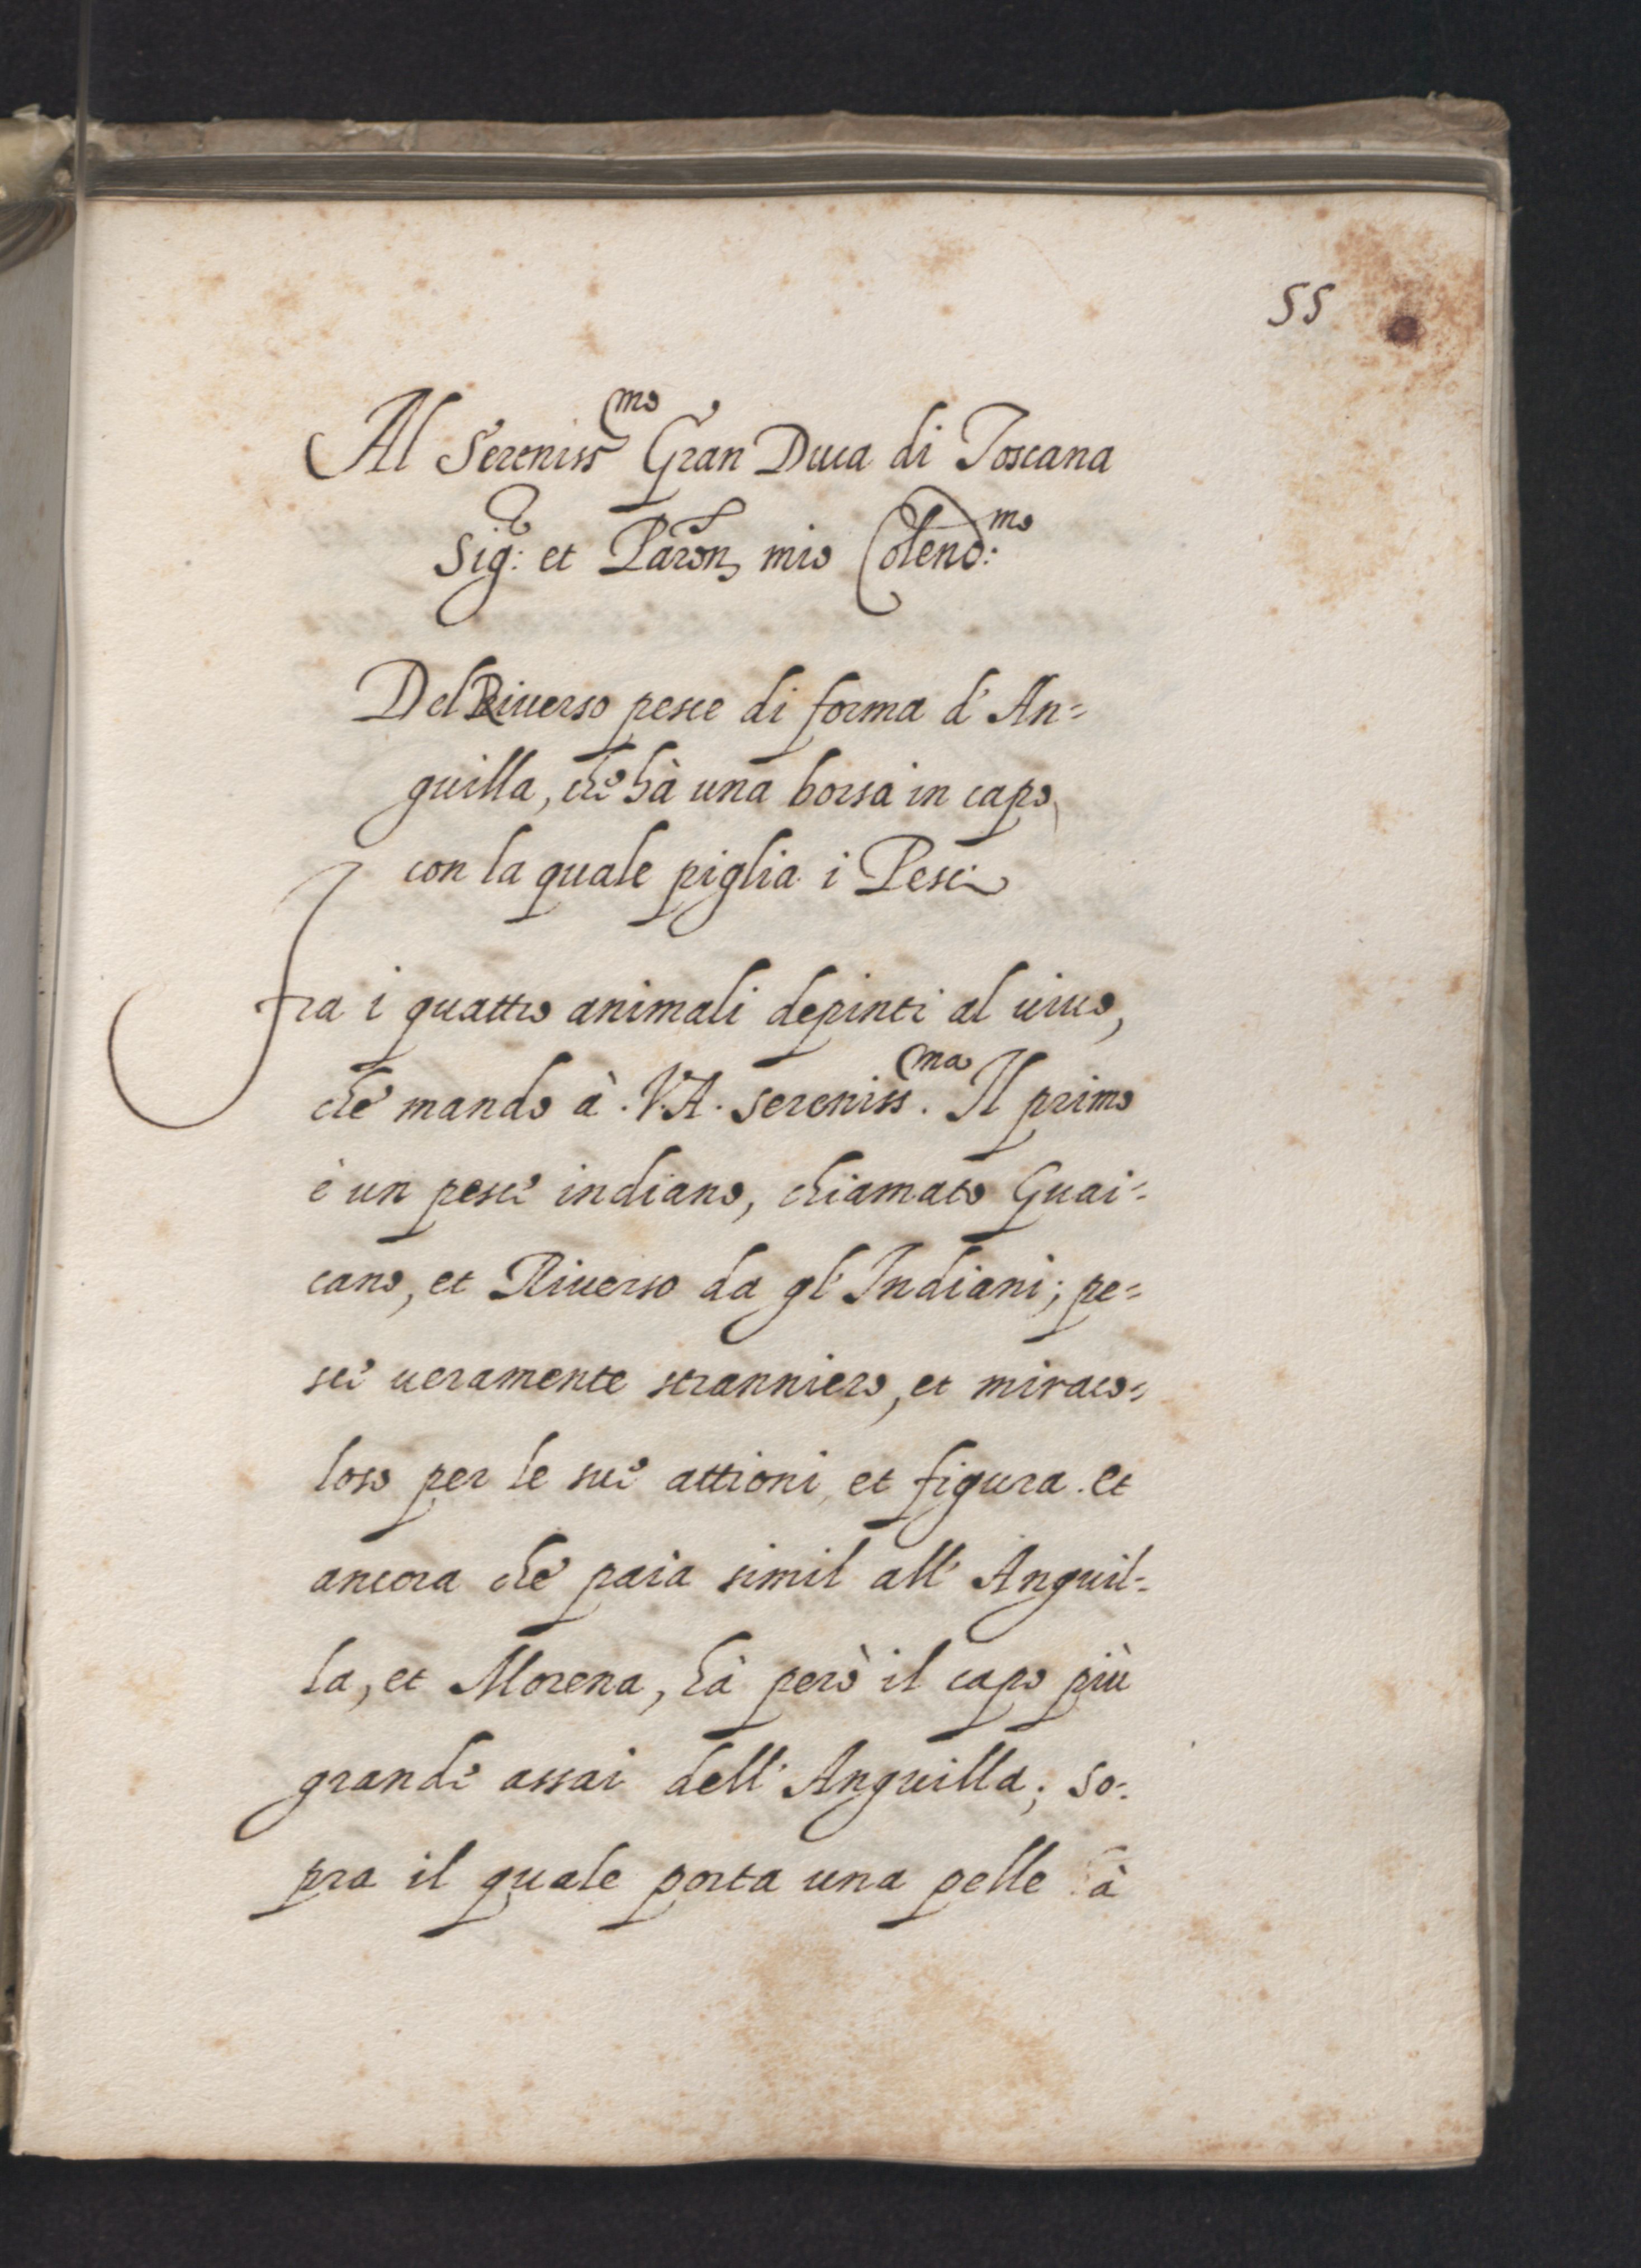 55
Al Sereniss.mo Gran Duca di Toscana
Sig: et Paron mio Colend:mo
Del Riuerso pesce di forma d'An=
guilla, che hà una borsa in capo,
con la quale piglia i Pesci
Fra i quattro animali depinti al uiuo,
che mando à .V.A. sereniss.ma Il primo
è un pesce indiano, chiamato Guai=
cano, et Riuerso da gl'Indiani; pe=
sce ueramente stranniero, et miraco=
loso per le sue attioni, et figura. et
ancora che paia simil all'Anguil=
la, et Morena, hà però il capo più
grande assai dell'Anguilla; so=
pra il quale porta una pelle à